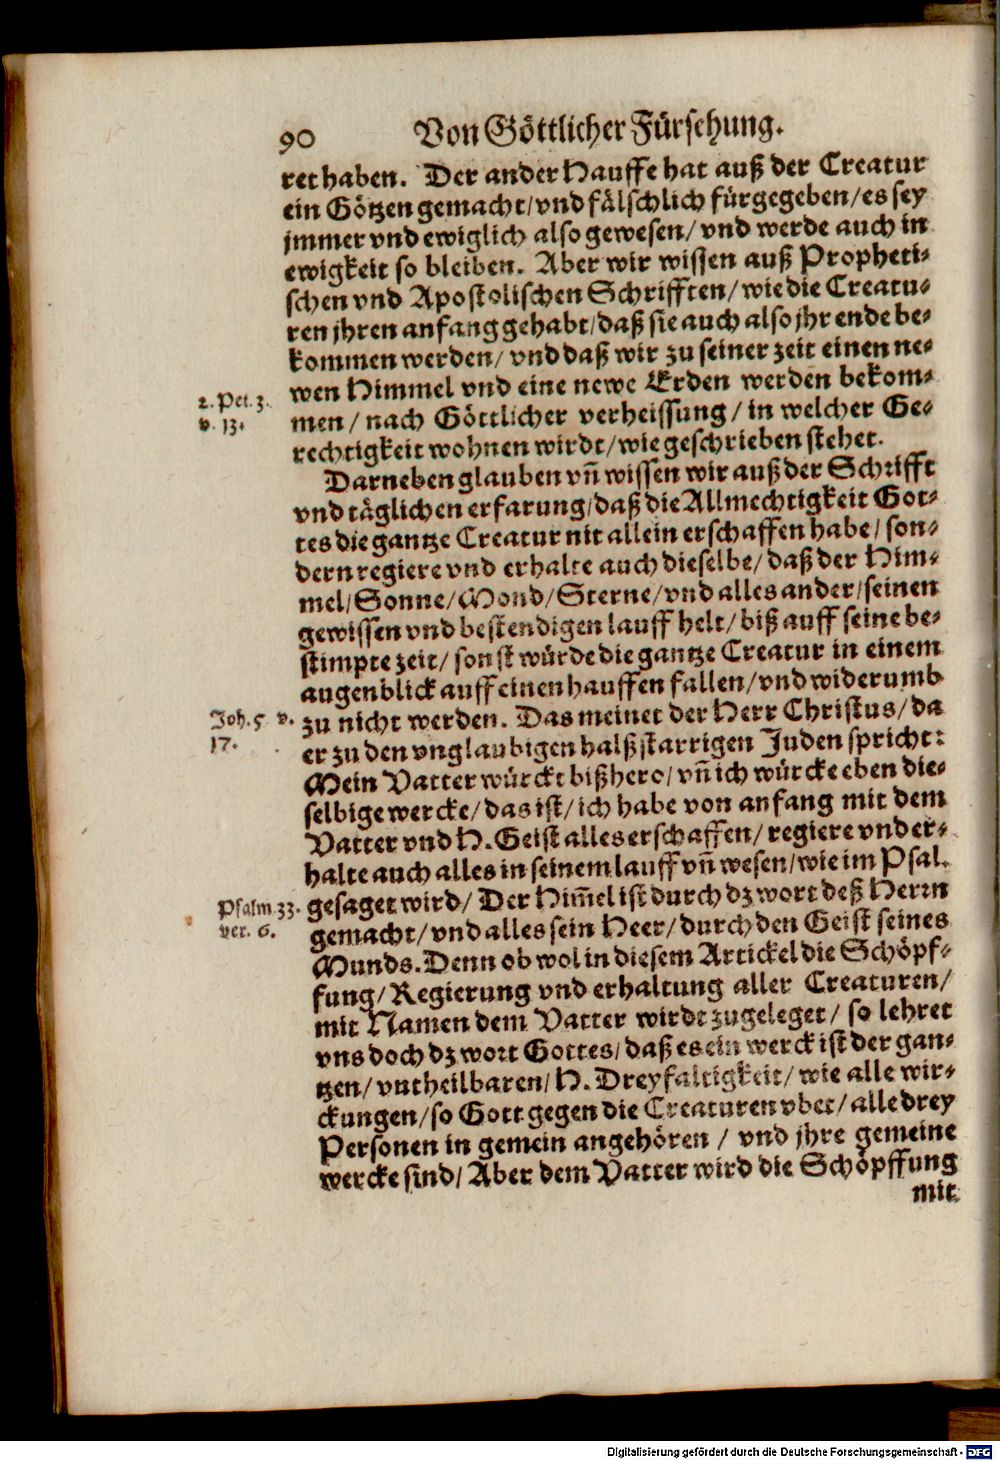 90 Von Göttlicher Fürsehung.
ret haben. Der ander Hauffe hat auß der Creatur
ein Götzen gemacht/ vnd fälschlich fürgegeben/ es sey
jmmer vnd ewiglich also gewesen/ vnd werde auch in
ewigkeit so bleiben. Aber wir wissen auß Propheti-
schen vnd Apostolischen Schrifften/ wie die Creatu-
ren jhren anfang gehabt/ daß sie auch also jhr ende be-
kommen werden/ vnd daß wir zu seiner zeit einen ne-
wen Himmel vnd eine newe Erden werden bekom-
2. Pet. 3.
v. 13.
men/ nach Göttlicher verheissung/ in welcher Ge-
rechtigkeit wohnen wirdt/ wie geschrieben stehet.
Darneben glauben vn̄ wissen wir auß der Schrifft
vnd täglichen erfarung/ daß die Allmechtigkeit Got-
tes die gantze Creatur nit allein erschaffen habe/ son-
dern regiere vnd erhalte auch dieselbe/ daß der Him-
mel/ Sonne/ Mond/ Sterne/ vnd alles ander/ seinen
gewissen vnd bestendigen lauff helt/ biß auff seine be-
stimpte zeit/ sonst würde die gantze Creatur in einem
augenblick auff einen hauffen fallen/ vnd widerumb
Joh. 5 v.
17.
zu nicht werden. Das meinet der Herr Christus/ da
er zu den vnglaubigen halßstarrigen Juden spricht:
Mein Vatter würckt bißhero/ vn̄ ich würcke eben die-
selbige wercke/ das ist/ ich habe von anfang mit dem
Vatter vnd H. Geist alles erschaffen/ regiere vnd er-
halte auch alles in seinem lauff vn̄ wesen/ wie im Psal.
Psalm 33.
ver. 6.
gesaget wird/ Der Him̄el ist durch dz wort deß Herrn
gemacht/ vnd alles sein Heer/ durch den Geist seines
Munds. Denn ob wol in diesem Artickel die Schöpf-
fung/ Regierung vnd erhaltung aller Creaturen/
mit Namen dem Vatter wirdt zugeleget/ so lehret
vns doch dz wort Gottes/ daß es ein werck ist der gan-
tzen/ vntheilbaren/ H. Dreyfaltigkeit/ wie alle wir-
ckungen/ so Gott gegen die Creaturen vbet/ alle drey
Personen in gemein angehören/ vnd jhre gemeine
wercke sind/ Aber dem Vatter wird die Schöpffung
mit
Digitalisierung gefördert durch die Deutsche Forschungsgemeinschaft - DFG